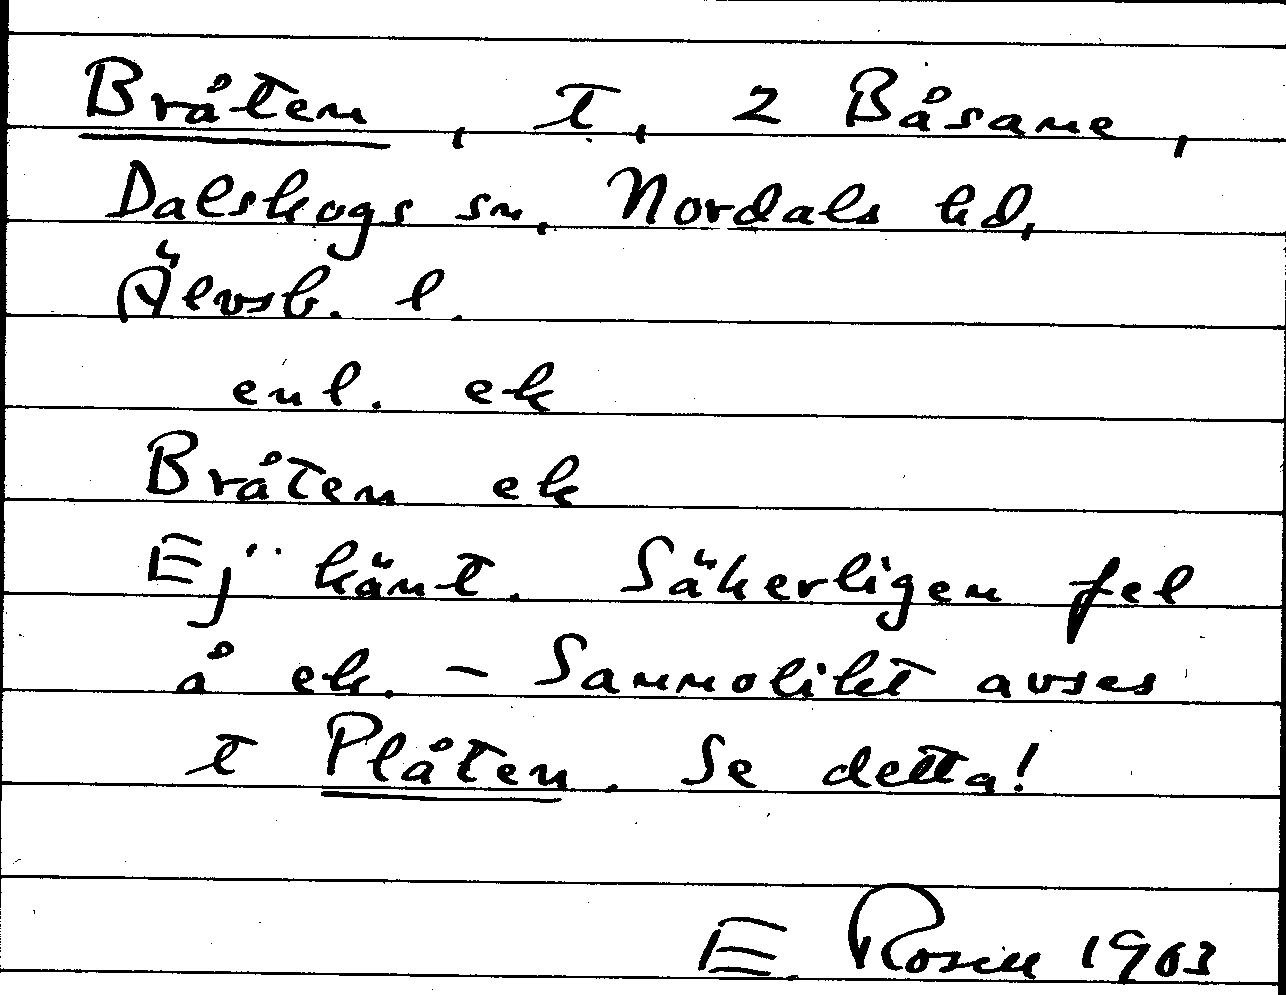 Bråten, t, 2 Båsane,
Dalskogs sn, Nordals hd,
Älvsb. l.
enl. ek
Bråten ek
Ej känt. Säkerligen fel
å ek. - Sannolikt avses
t Plåten. Se detta!
E. Rosell 1903